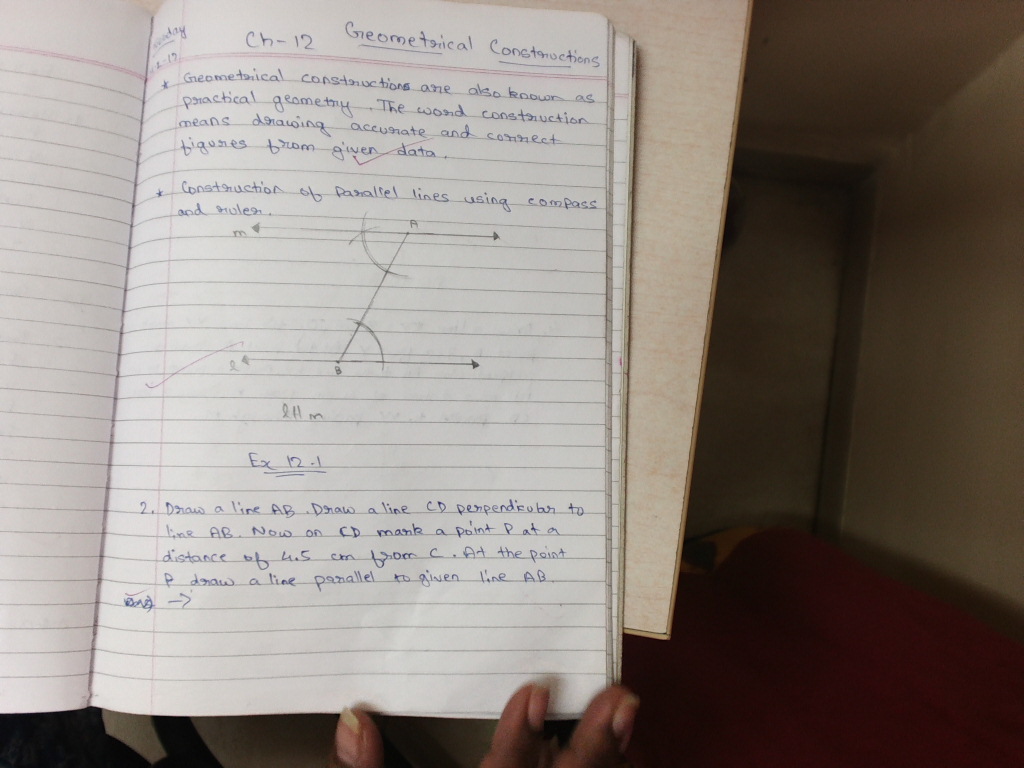 Ch-12 Geometrical Constructions
* Geometrical constructions are also known as
practical geometry. The word construction
means drawing accurate and correct
figures from given data.
* Construction of parallel lines using compass
and ruler.
m A
l B
l || m
Ex 12.1
2. Draw a line AB. Draw a line CD perpendicular to
line AB. Now on CD mark a point P at a
distance of 4.5 cm from C. At the point
P draw a line parallel to given line AB.
→